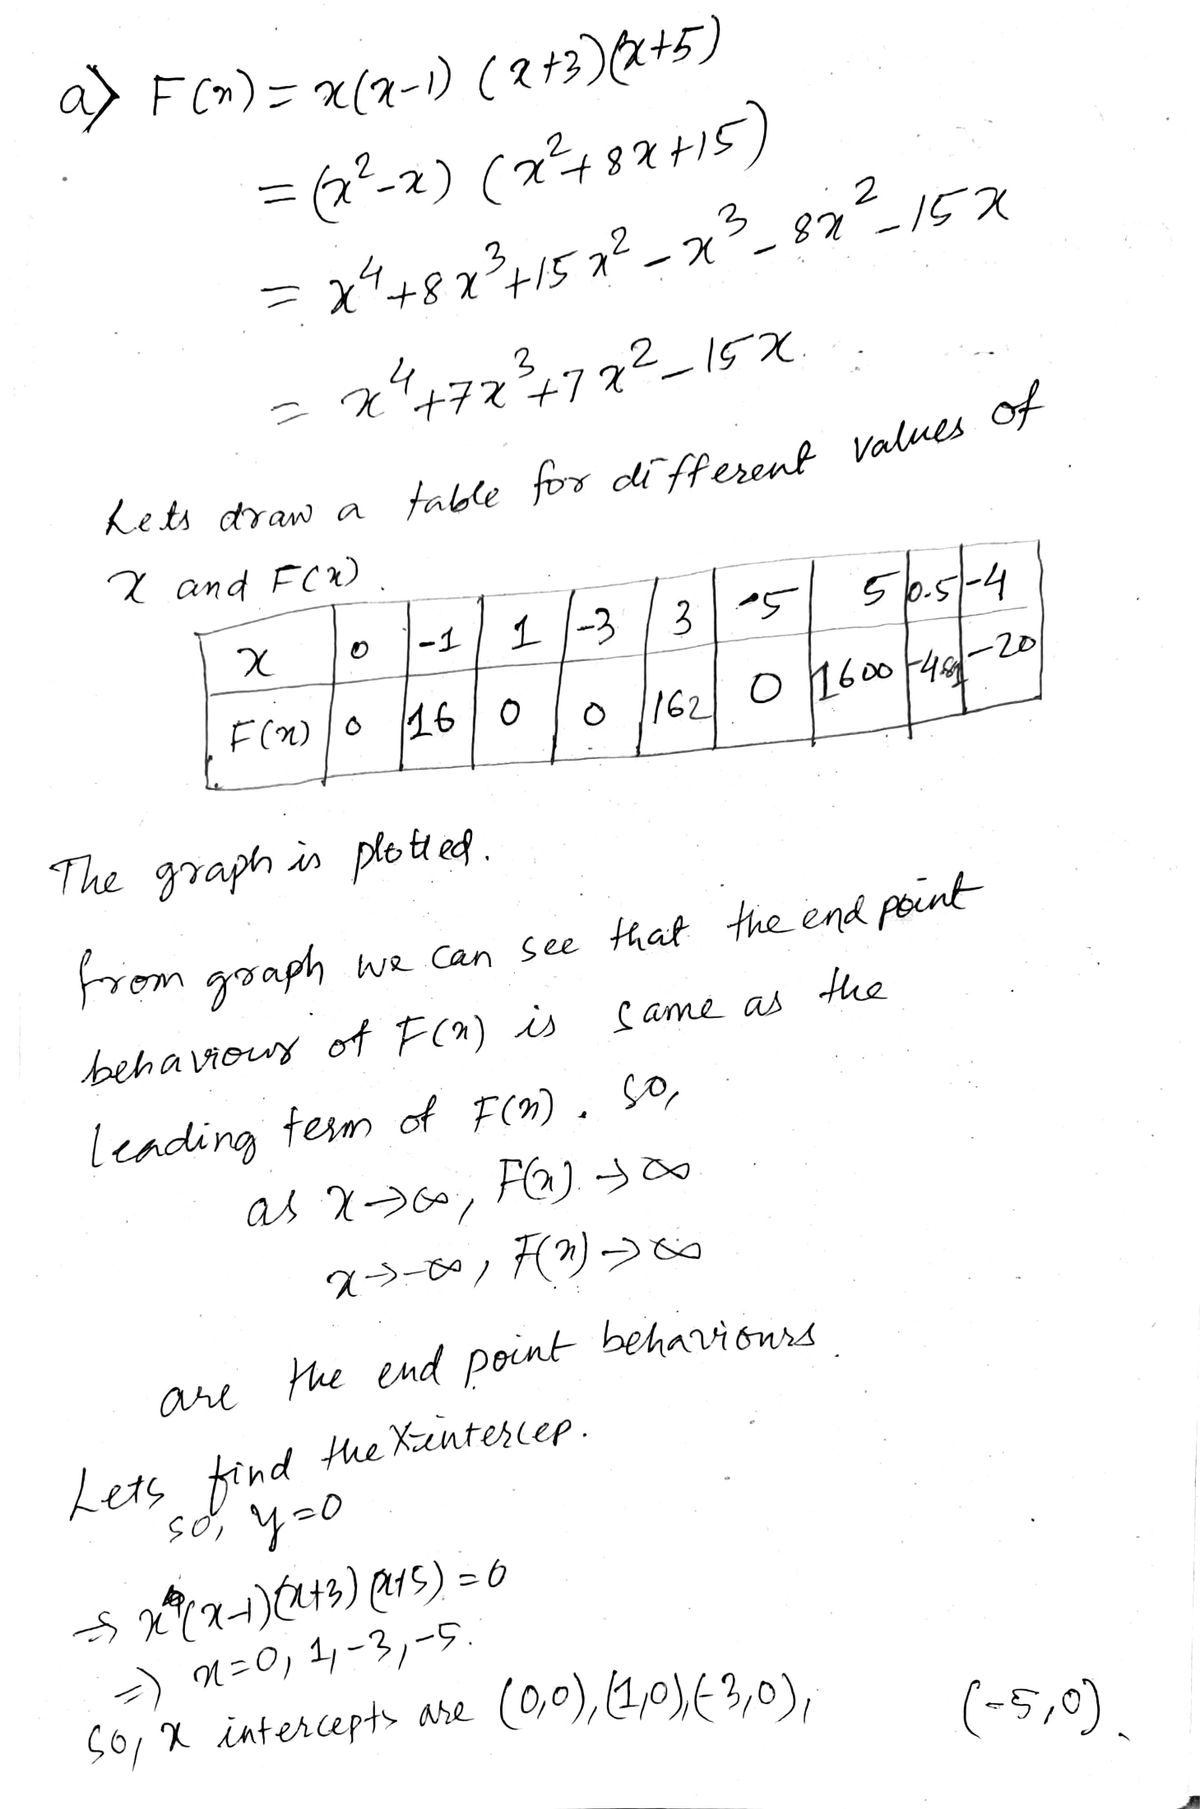 a) F(x) = x(x-1) (x+3)(x+5)
= (x²-x) (x²+8x+15)
= x⁴+8x³+15x²-x³-8x²-15x
= x⁴+7x³+7x²-15x.
Lets draw a table for different values of
x and F(x).
x 0 -1 1 -3 3 -5 5 0.5 -4
F(x) 0 16 0 0 162 0 1600 -20
The graph is plotted.
from graph we can see that the end point
behaviour of F(x) is same as the
leading term of F(x). so,
as x→∞, F(x)→∞
x→-∞, F(x)→∞
are the end point behaviours.
Lets find the X-intercep.
so, y=0
⇒ x(x-1)(x+3)(x+5)=0
⇒) x=0, 1,-3,-5.
so, x intercepts are (0,0),(1,0),(-3,0), (-5,0).